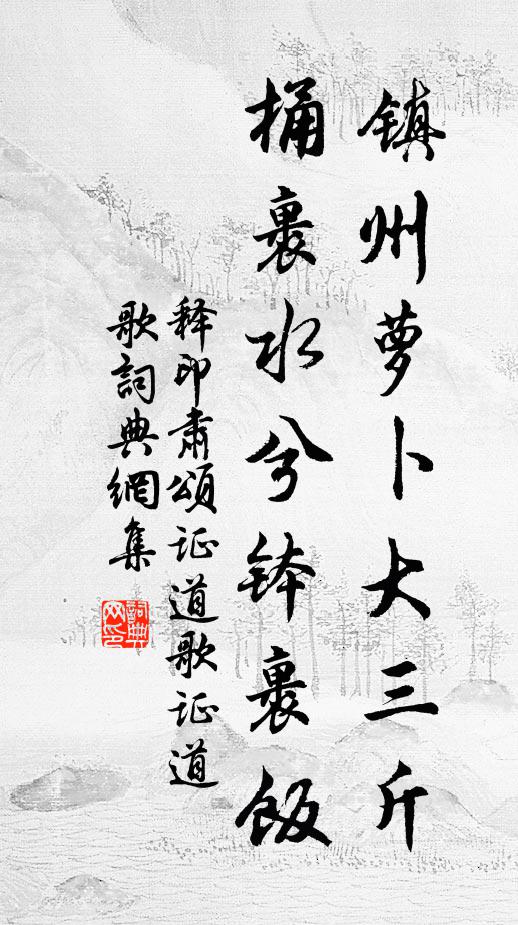 镇州萝卜大三斤
桶裹水兮钵裹饭
释印肃颂证道歌证道
歌词典網集
詞典网印